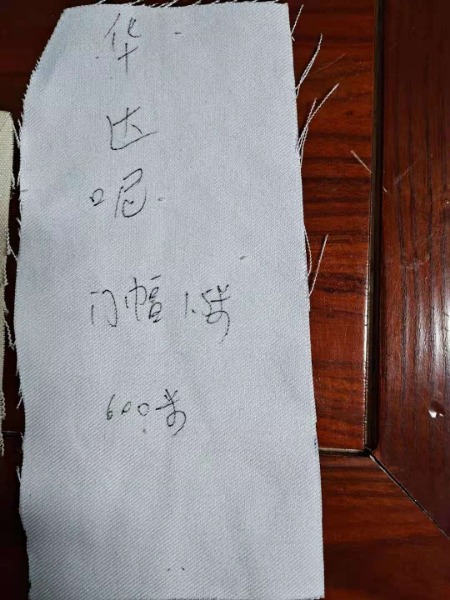 华
达
呢
门幅1.5米
600米